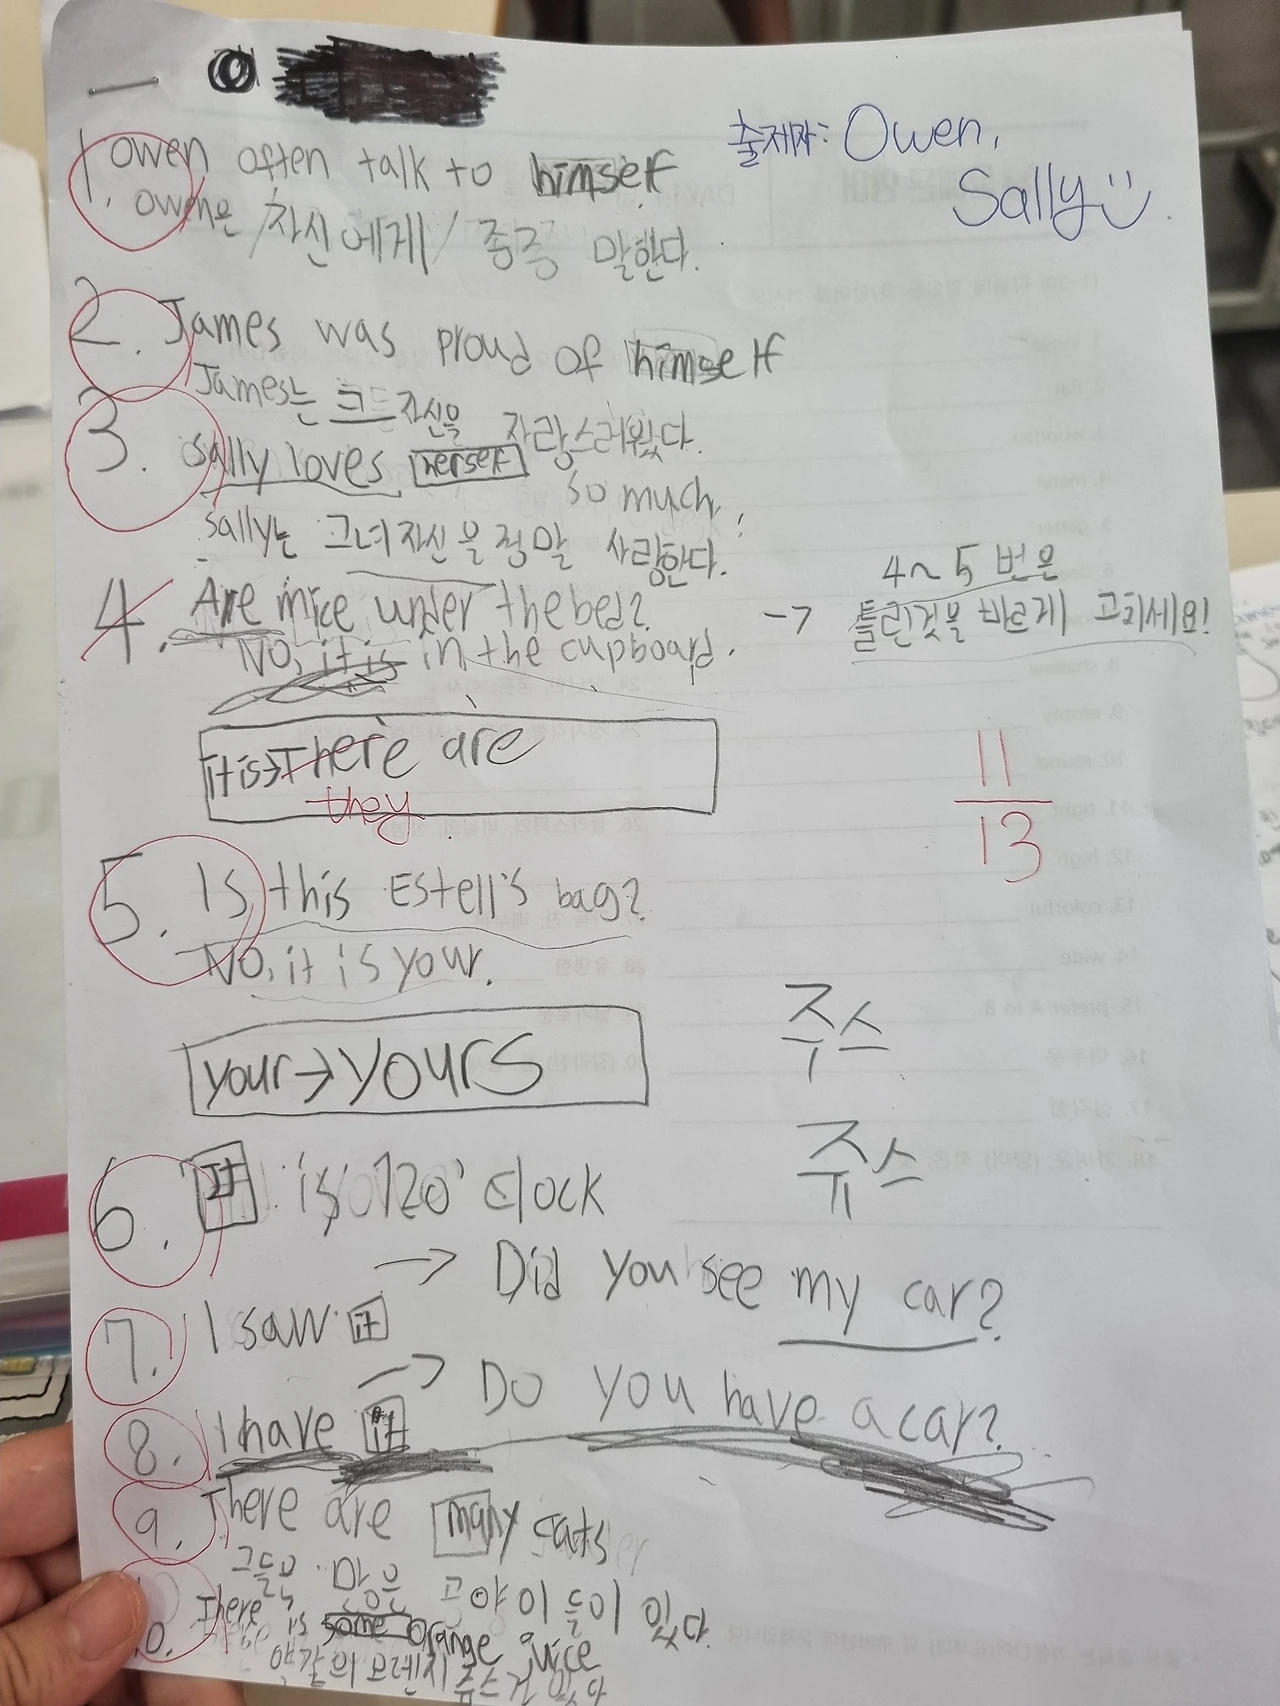 출제자: Owen,
Sally
1. Owen often talk to himself
Owen은 /자신에게/ 종종 말한다.
2. James was proud of himself
James는 그 자신을 자랑스러웠다.
3. Sally loves herself
so much.
Sally는 그녀 자신을 정말 사랑한다.
4. Are mice under the bed?
No, it is in the cupboard.
→ 4~5번은
틀린것을 바르게 고치세요!
it is→There are
they
11
13
5. Is this Estell's bag?
No, it is your.
your→yours
주스
쥬스
6. It is 12o'clock
→ Did you see my car?
7. I saw it
→ Do you have a car?
8. I have it
9. There are many cats
그들은 많은 고양이들이 있다.
10. There is some orange juice